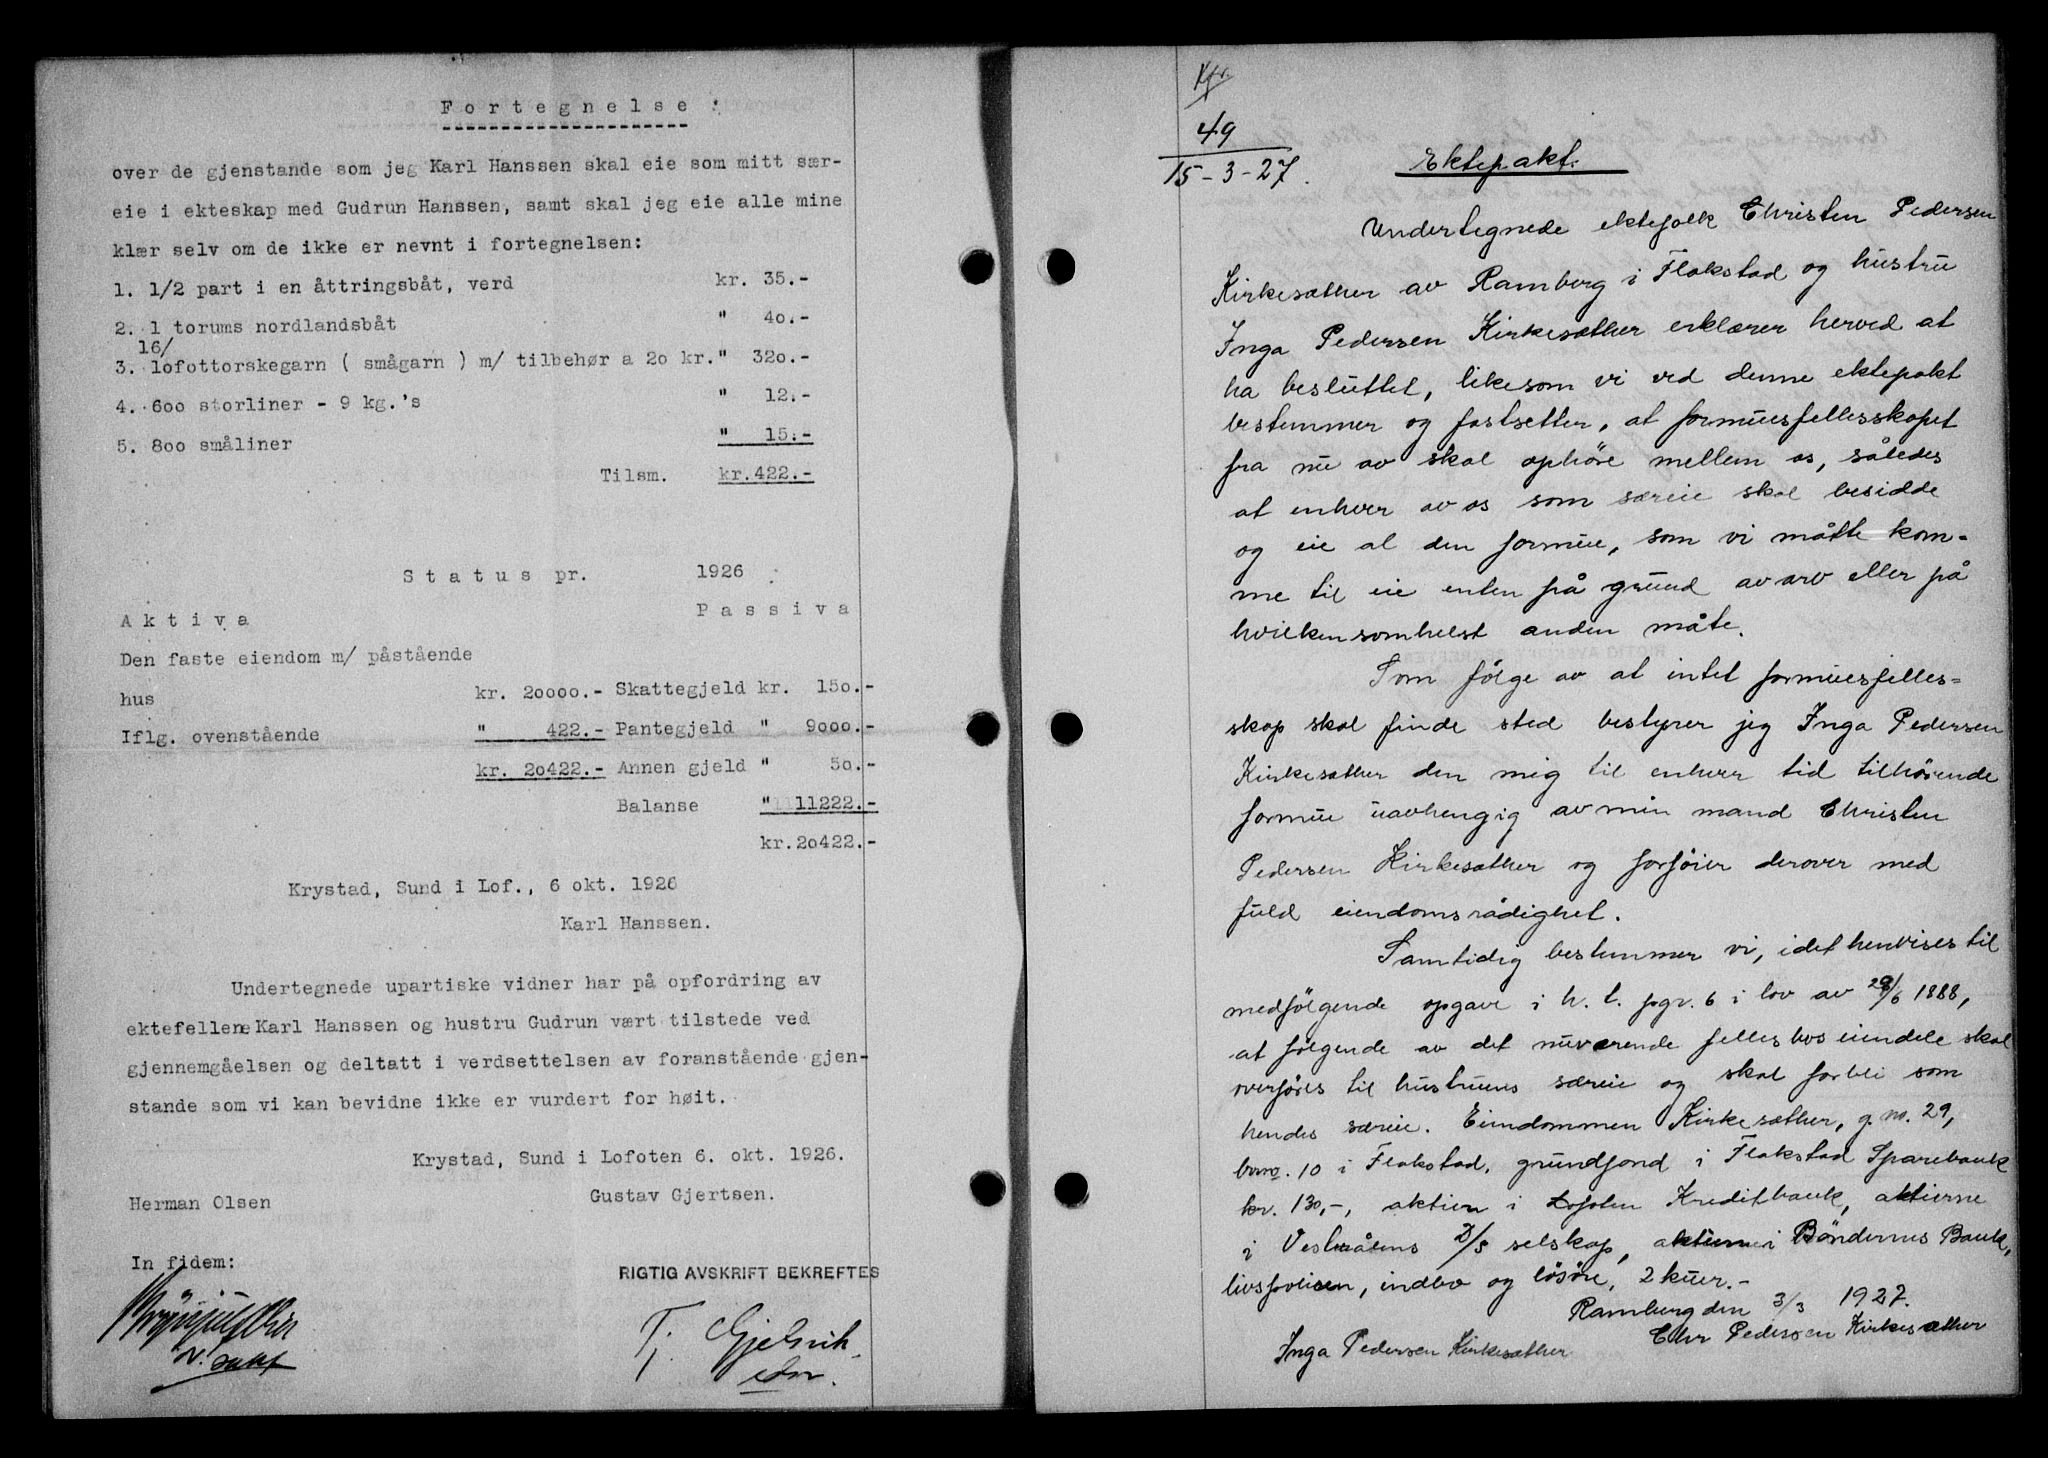 Fortegnelse :
over de gjenstande som jeg Karl Hanssen skal eie som mitt sær-
eie i ekteskap med Gudrun Hanssen, samt skal jeg eie alle mine
klær selv om de ikke er nevnt i fortegnelsen:
1. 1/2 part i en åttringsbåt, verd kr. 35.-
2. 1 torums nordlandsbåt " 40.-
16/
3. lofottorskegarn ( smågarn ) m/ tilbehør a 20 kr. " 320.-
4. 600 storliner - 9 kg.'s " 12.-
5. 800 småliner " 15.-
Tilsm. kr.422.-
Status pr. 1926 :
Passiva
Aktiva
Den faste eiendom m/ påstående
hus kr. 20000.- Skattegjeld kr. 150.-
Iflg. ovenstående " 422.- Pantegjeld " 9000.-
kr. 20422.- Annen gjeld " 50.-
Balanse " 11222.-
kr.20422.-
Krystad, Sund i Lof., 6 okt. 1926
Karl Hanssen.
Undertegnede upartiske vidner har på opfordring av
ektefellene Karl Hanssen og hustru Gudrun vært tilstede ved
gjennemgåelsen og deltatt i verdsettelsen av foranstående gjen-
stande som vi kan bevidne ikke er vurdert for høit.
Krystad, Sund i Lofoten 6. okt. 1926.
Herman Olsen Gustav Gjertsen.
In fidem:
RIGTIG AVSKRIFT BEKREFTES
Kfr.
49
15-3-27.
Ektepakt.
Undertegnede ektefolk Christen Pedersen
Kirkesæther av Ramberg i Flakstad og hustru
Inga Pedersen Kirkesæther erklærer herved at
ha besluttet, likesom vi ved denne ektepakt
bestemmer og fastsetter, at formuesfellesskapet
fra nu av skal ophöre mellem os, således
at enhver av os som særeie skal besidde
og eie al den formue, som vi måtte kom-
me til eie enten på grund av arv eller på
hvilkensomhelst anden måte.
Som følge av at intet formuesfelles=
skap skal finde sted bestyrer jeg Inga Pedersen
Kirkesæther den mig til enhver tid tilhörende
formue uavhengig av min mand Christen
Pedersen Kirkesæther og forföier derover med
fuld eiendomsrådighet.
Samtidig bestemmer vi, idet henvises til
medfölgende opgave i h. t. pgr. 6 i lov av 29/6 1888,
at fölgende av det nuværende fellesbos eiendele skal
overföres til hustruens særeie og skal forbli som
hendes særeie. Eiendommen Kirkesæther, g. no. 29,
brno. 10 i Flakstad, grundfond i Flakstad Sparebank
kr. 130,-, aktien i Lofoten Kreditbank, aktierne
i Vestraålens D/S selskap, aktien i Böndernes Bank,
livspolicen, indbo og lösöre, 2 kuer.-
Ramberg den 3/3 1927.
Chr Pedersen Kirkesæther
Inga Pedersen Kirkesæther